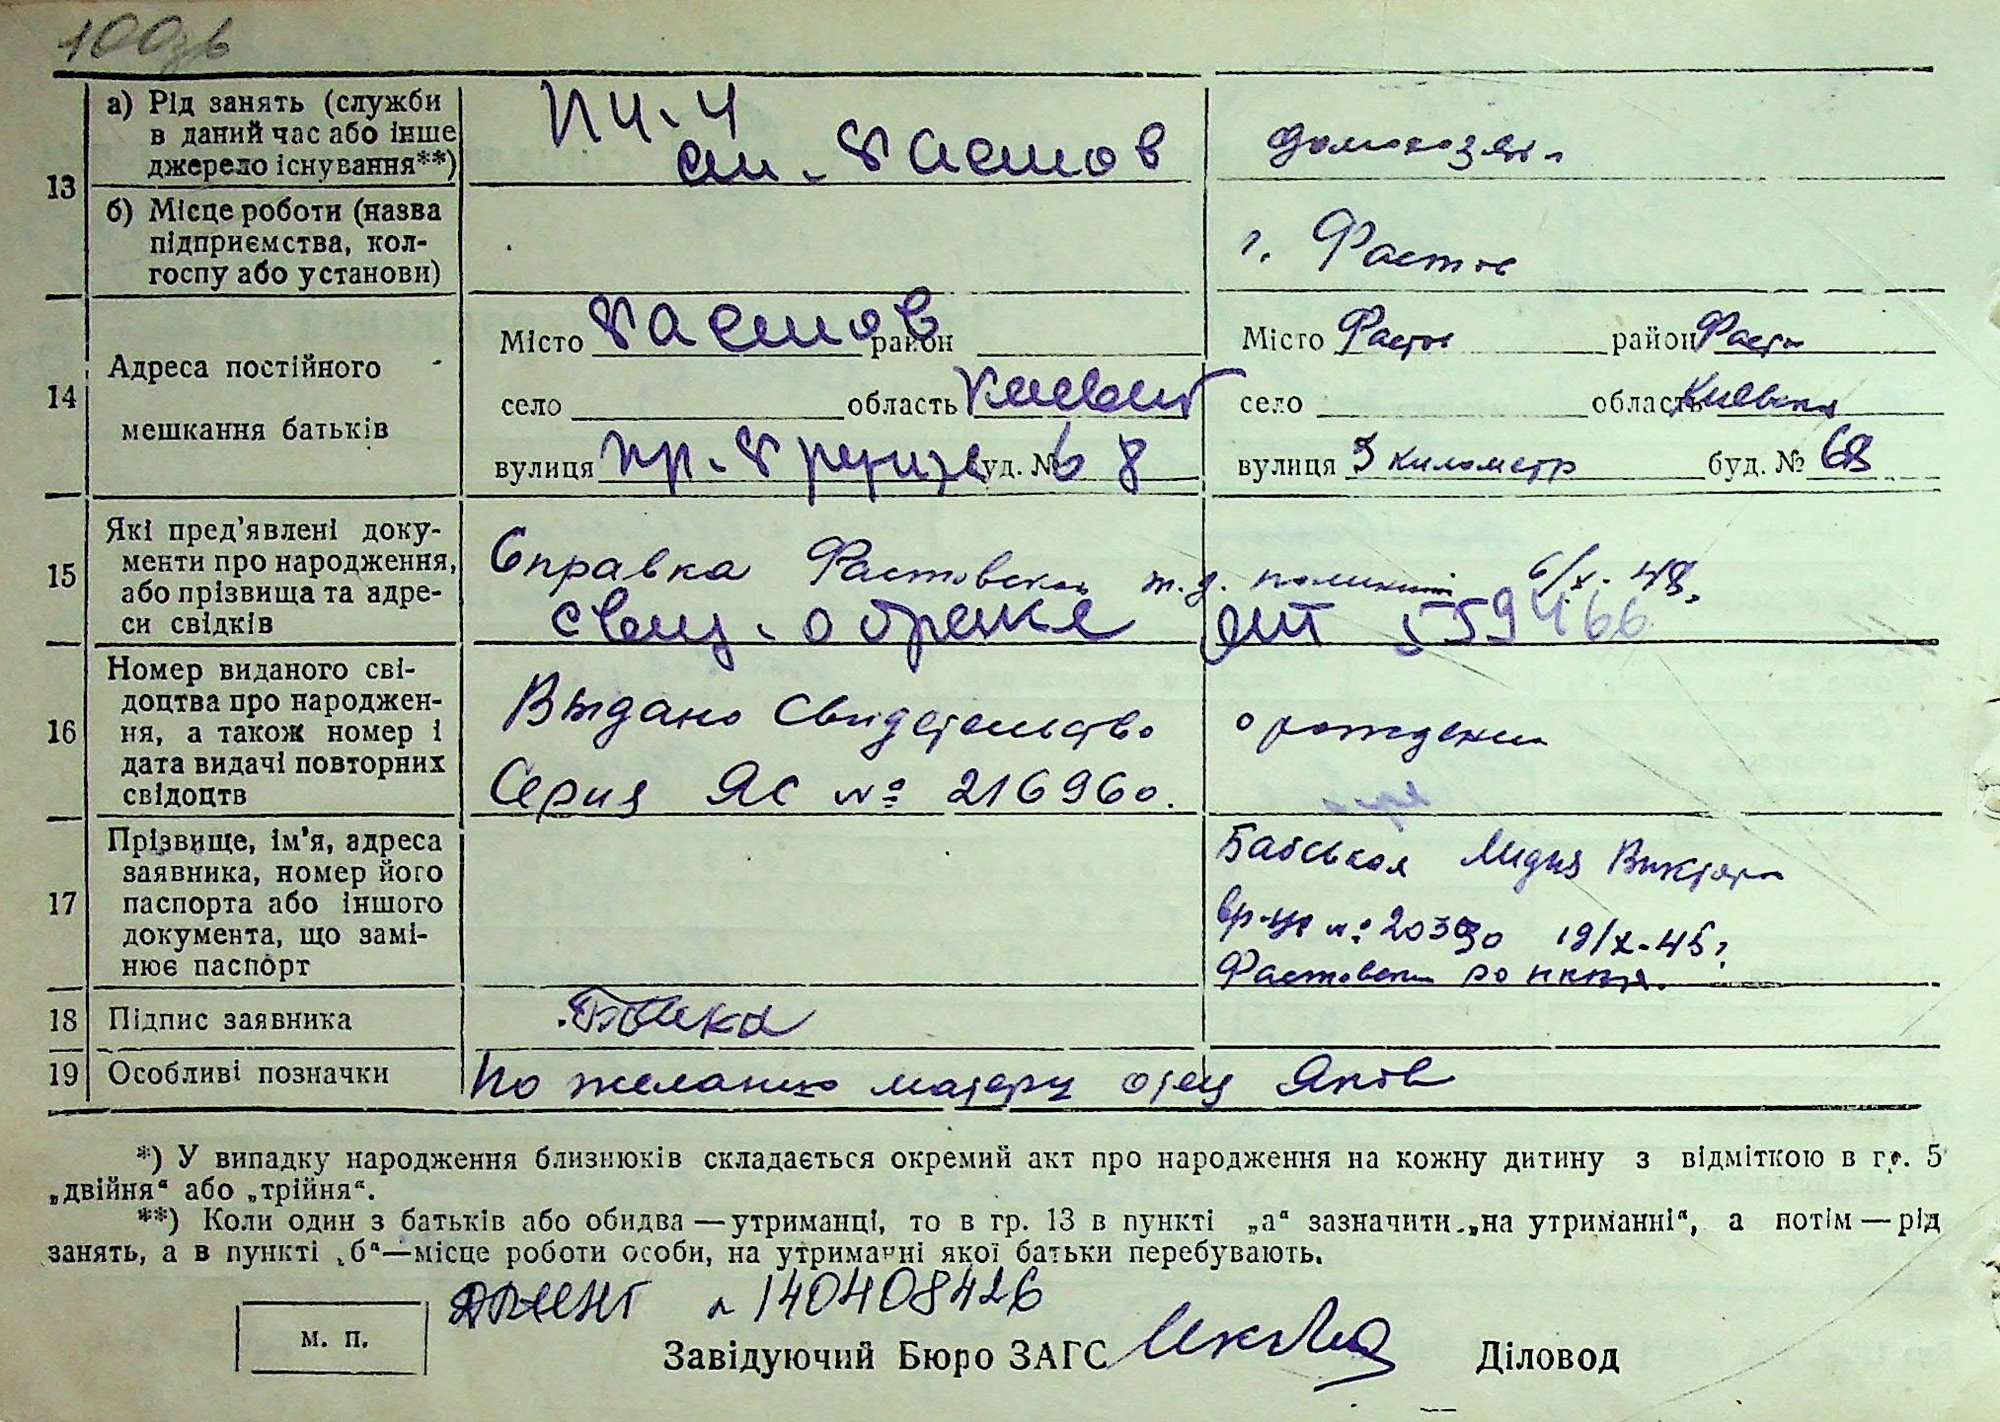 100зв
13 а) Рід занять (служби в даний час або інше джерело існування**)
ПЧ-4
ст. Фастов
домохоз.
б) Місце роботи (назва підприємства, колгоспу або установи)
г. Фастов
14 Адреса постійного мешкання батьків
Місто Фастов район
Місто Фастов район Фаст
село область Киевск
село область Киевская
вулиця пр. Фрунзе буд. № 8
вулиця 3 километр буд. № 68
15 Які пред'явлені документи про народження, або прізвища та адреси свідків
Справка Фастовской ж.д. поликли 6/X-48.
свид. о браке 559466
16 Номер виданого свідоцтва про народження, а також номер і дата видачі повторних свідоцтв
Выдано Свидетельство о рождении
Серия ЯС № 216960.
17 Прізвище, ім'я, адреса заявника, номер його паспорта або іншого документа, що замінює паспорт
Лидия Виктор
19/X-45г.
Фастовским РО НКВД.
18 Підпис заявника
19 Особливі позначки
По желанию матери отец Яков
*) У випадку народження близнюків складається окремий акт про народження на кожну дитину з відміткою в гр. 5
„двійня“ або „трійня“.
**) Коли один з батьків або обидва — утриманці, то в гр. 13 в пункті „а“ зазначити „на утриманні“, а потім — рід
занять, а в пункті „б“ — місце роботи особи, на утриманні якої батьки перебувають.
140408426
м. п.
Завідуючий Бюро ЗАГС
Діловод